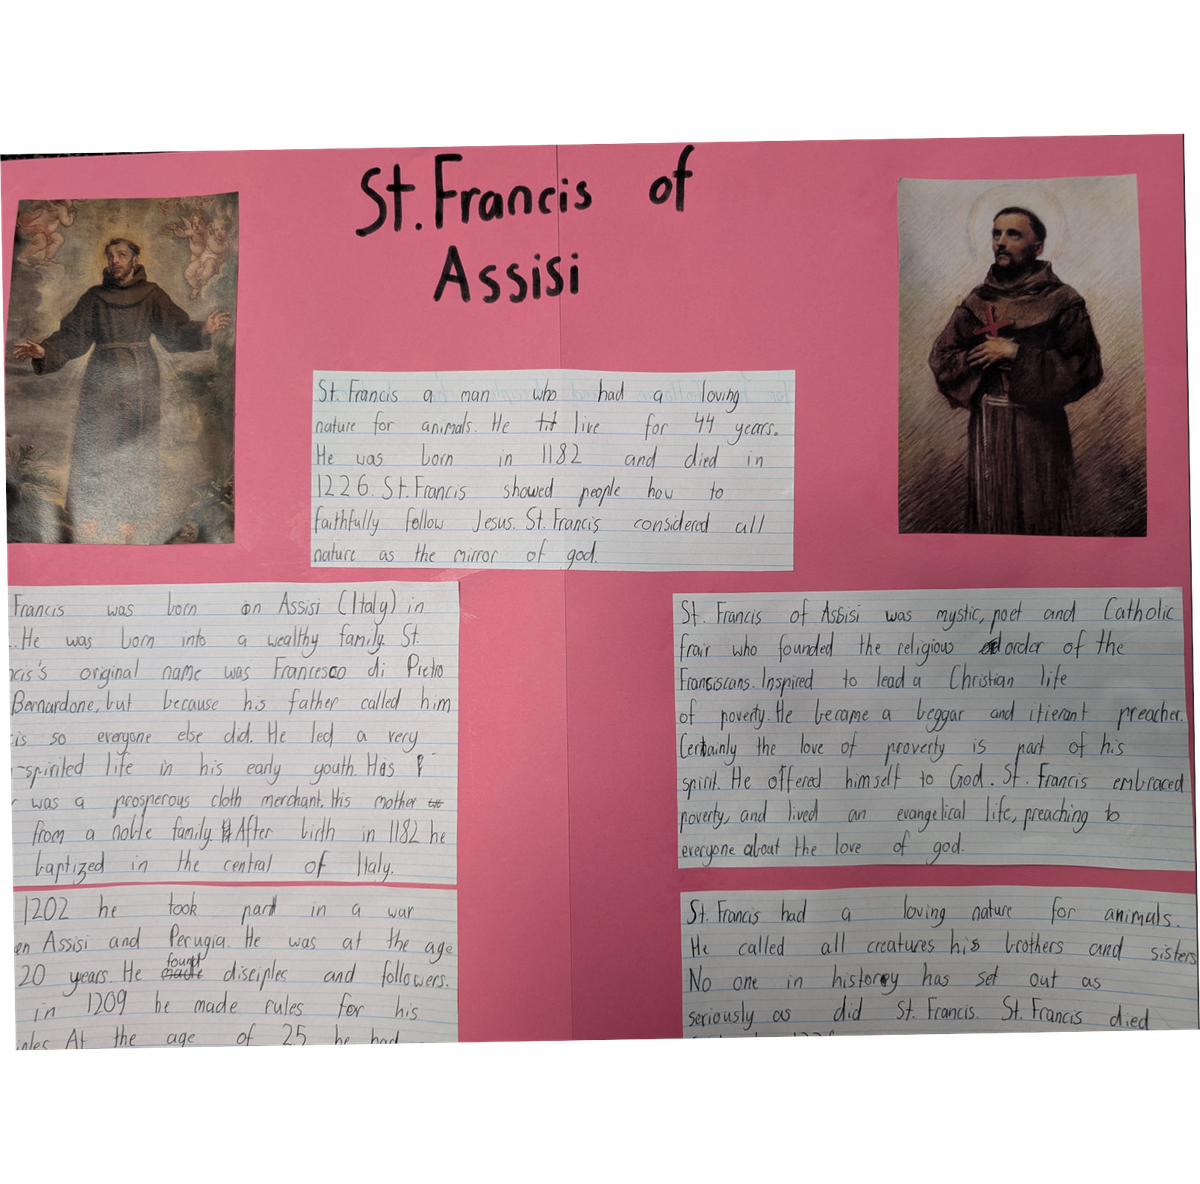 St. Francis of
Assisi
St. Francis a man who had a loving
nature for animals. He live for 44 years.
He was born in 1182 and died in
1226. St. Francis showed people how to
faithfully follow Jesus. St. Francis considered all
nature as the mirror of god.
Francis was born in Assisi (Italy) in
. He was born into a wealthy family. St.
ncis's original name was Francesco di Pietro
Bernardone, but because his father called him
cis so everyone else did. He led a very
-spirited life in his early youth. His
r was a prosperous cloth merchant. His mother
from a noble family. After birth in 1182 he
baptized in the central of Italy.
1202 he took part in a war
en Assisi and Perugia. He was at the age
20 years. He found disciples and followers.
in 1209 he made rules for his
ples. At the age of 25 he had
St. Francis of Assisi was mystic, poet and Catholic
frair who founded the religious order of the
Franciscans. Inspired to lead a Christian life
of poverty. He became a beggar and itierant preacher.
Certainly the love of proverty is part of his
spirit. He offered himself to God. St. Francis embraced
poverty, and lived an evangelical life, preaching to
everyone about the love of god.
St. Francis had a loving nature for animals.
He called all creatures his brothers and sisters
No one in history has set out as
seriously as did St. Francis. St. Francis died